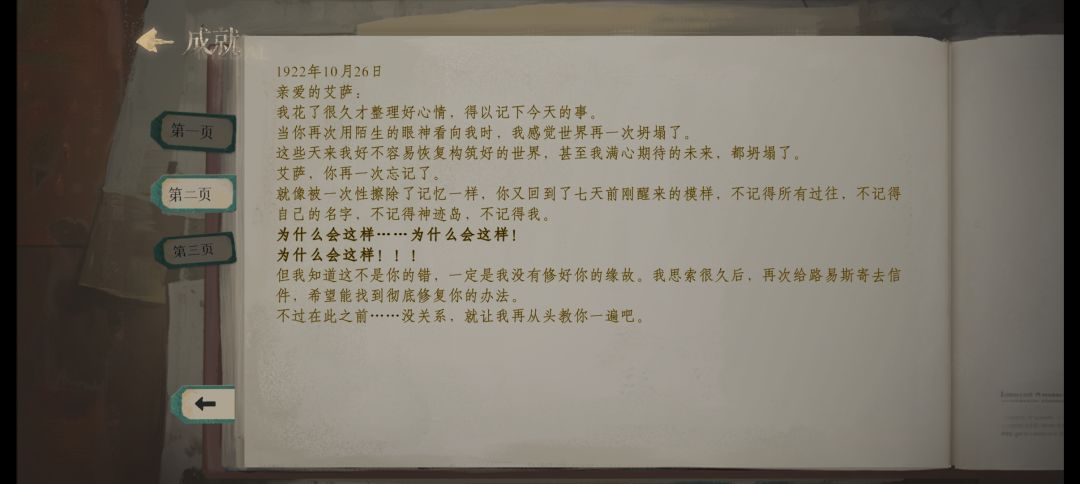 成就
第一页
第二页
第三页
1922年10月26日
亲爱的艾萨：
我花了很久才整理好心情，得以记下今天的事。
当你再次用陌生的眼神看向我时，我感觉世界再一次坍塌了。
这些天来我好不容易恢复构筑好的世界，甚至我满心期待的未来，都坍塌了。
艾萨，你再一次忘记了。
就像被一次性擦除了记忆一样，你又回到了七天前刚醒来的模样，不记得所有过往，不记得
自己的名字，不记得神迹岛，不记得我。
为什么会这样……为什么会这样！
为什么会这样！！！
但我知道这不是你的错，一定是我没有修好你的缘故。我思索很久后，再次给路易斯寄去信
件，希望能找到彻底修复你的办法。
不过在此之前……没关系，就让我再从头教你一遍吧。